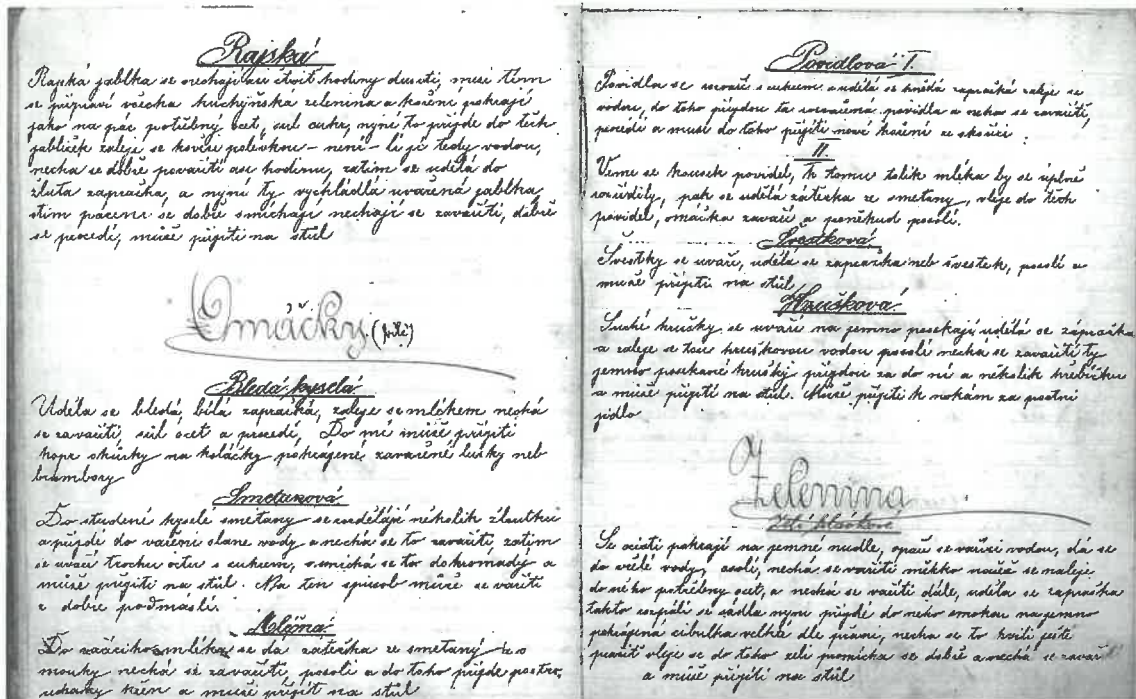 Rajská
Rajská jablka se nechají asi čtvrt hodiny dusiti, mezi tím
se připraví všecka kuchyňská zelenina a koření pokrájí
jako na pác potřebný ocet, sul cukr, nyné to přijde do těch
jabliček zaleje se hovězí polevkou – neni – li ji tedy vodou,
necha se dobře povařiti asi hodinu, zatim se udělá do
žluta zapražka, a nyní ty vychládlá uvařená jablka,
stim pácem se dobře smichají nechají se zavařiti, dobře
se procedí, může přijiti na stůl
Omáčky. (bílé)
Bledá kyselá
Udělá se bledá bílá zapražka, zaleje se mlékem nechá
se zavařiti, sul ocet a procedí, Do mí může přijiti
kopr okurky na koláčky pokrájené, zavařené lusky neb
brambory
Smetanová
Do studení kyselé smetany se rozdělají několik žloutku
a přijde do vařeni slane vody a nechá se to zavařiti, zatim
se svaří trochu octu s cukrem, smichá se to dohromady a
může přijiti na stůl. Na ten spusob může se vařiti
z dobře podmásli.
Mléčná
Do mléka, se dá zátěčka ze smetany a
mouky nechá se zavařiti, posoli a do toho přijde postrou-
uhaný křen a muže přijít na stůl
Povidlová I.
Povidla se svaří s cukrem udělá se hnědá zapražká zaleje se
vodou, do toho přijdou ta rozvařená povidla a necha se zavařiti,
procedí a musí do toho přijiti nové koření ze skořici
II.
Veme se kousek povidel, k tomu tolik mléka by se úplně
rozředily, pak se udělá zátěčka ze smetany, vleje do těch
povidel, omáčka zavaří a poněkud posolí.
Švestková
Švestky se uvaří, udělá se zapražka neb švestek, posolí a
muže přijiti na stůl
Hrušková
Suché hrušky se uvaří na jemno posekají udělá se zápražka
a zaleje se tou hruškovou vodou posolí nechá se zavařiti ty
jemno posekané hrušky přijdou za do ní a několik hřebíčku
a může přijiti na stůl. Může přijiti k nokám za postní
jidlo
Zelenina
Zelí hlávkové
Se očisti pokrájí na jemné nudle, opaří se vařici vodou, dá se
do vřelé vody, osolí, nechá se vařiti měkko načež se naleje
do něho potřebny ocet, a nechá se vařiti dále, udělá se zapražka
takto rozpálí se sádla nynu přijde do neho na jemno
pokrájená cibulka velká dle , necha se to kvili ještě
pražit vleje se do toho zeli promícha se dobře a nechá se zavařit
a muže přijiti na stůl